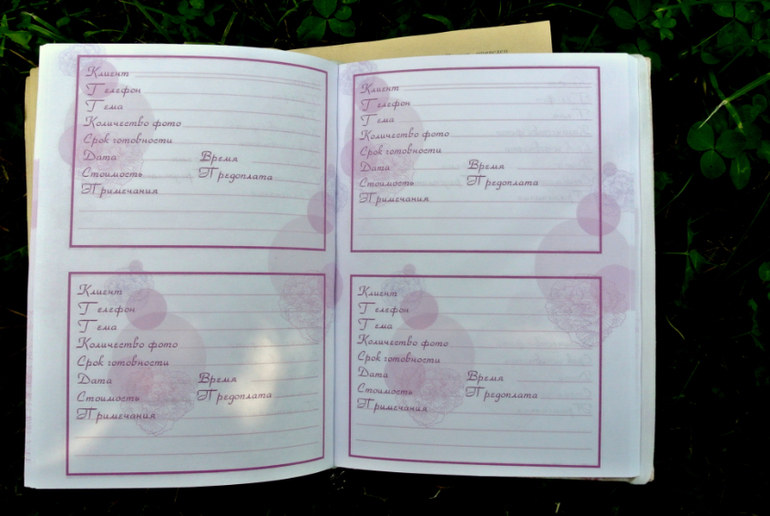 Клиент
Телефон
Тема
Количество фото
Срок готовности
Дата Время
Стоимость Предоплата
Примечания
Клиент
Телефон
Тема
Количество фото
Срок готовности
Дата Время
Стоимость Предоплата
Примечания
Клиент
Телефон
Тема
Количество фото
Срок готовности
Дата Время
Стоимость Предоплата
Примечания
Клиент
Телефон
Тема
Количество фото
Срок готовности
Дата Время
Стоимость Предоплата
Примечания